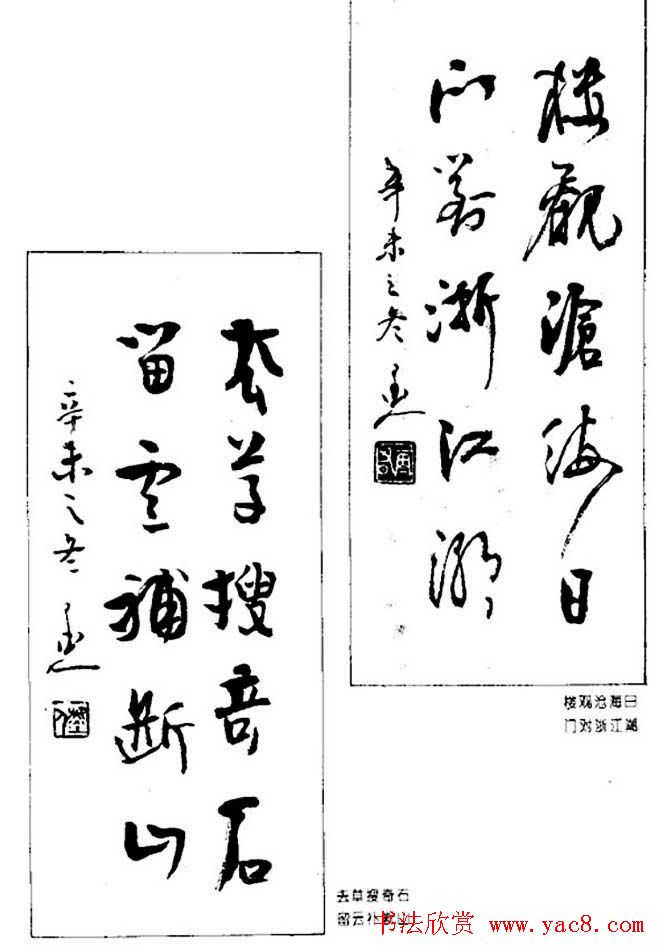 樓觀滄海日
門對浙江潮
辛未之冬
楼观沧海日
门对浙江潮
去草搜奇石
留雲補断山
辛未之冬
去草搜奇石
留云补断山
书法欣赏 www.yac8.com